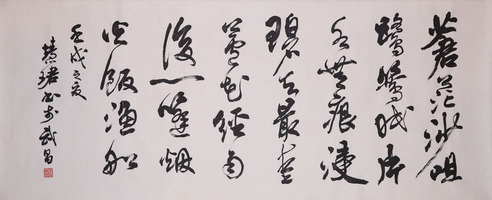 蒼茫沙咀
鷺鷥眠片
水無痕浸
碧天最愛
蘆花經雨
後一篷烟
火飯漁船
壬戌之夏
書於武昌